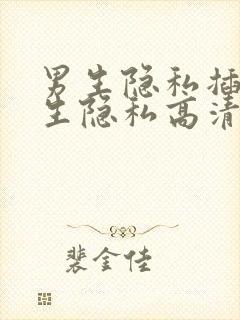 男生隐私插
生隐私高清
裴金佳